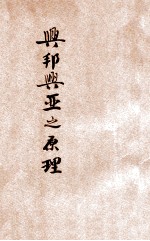 興邦興亜之原理